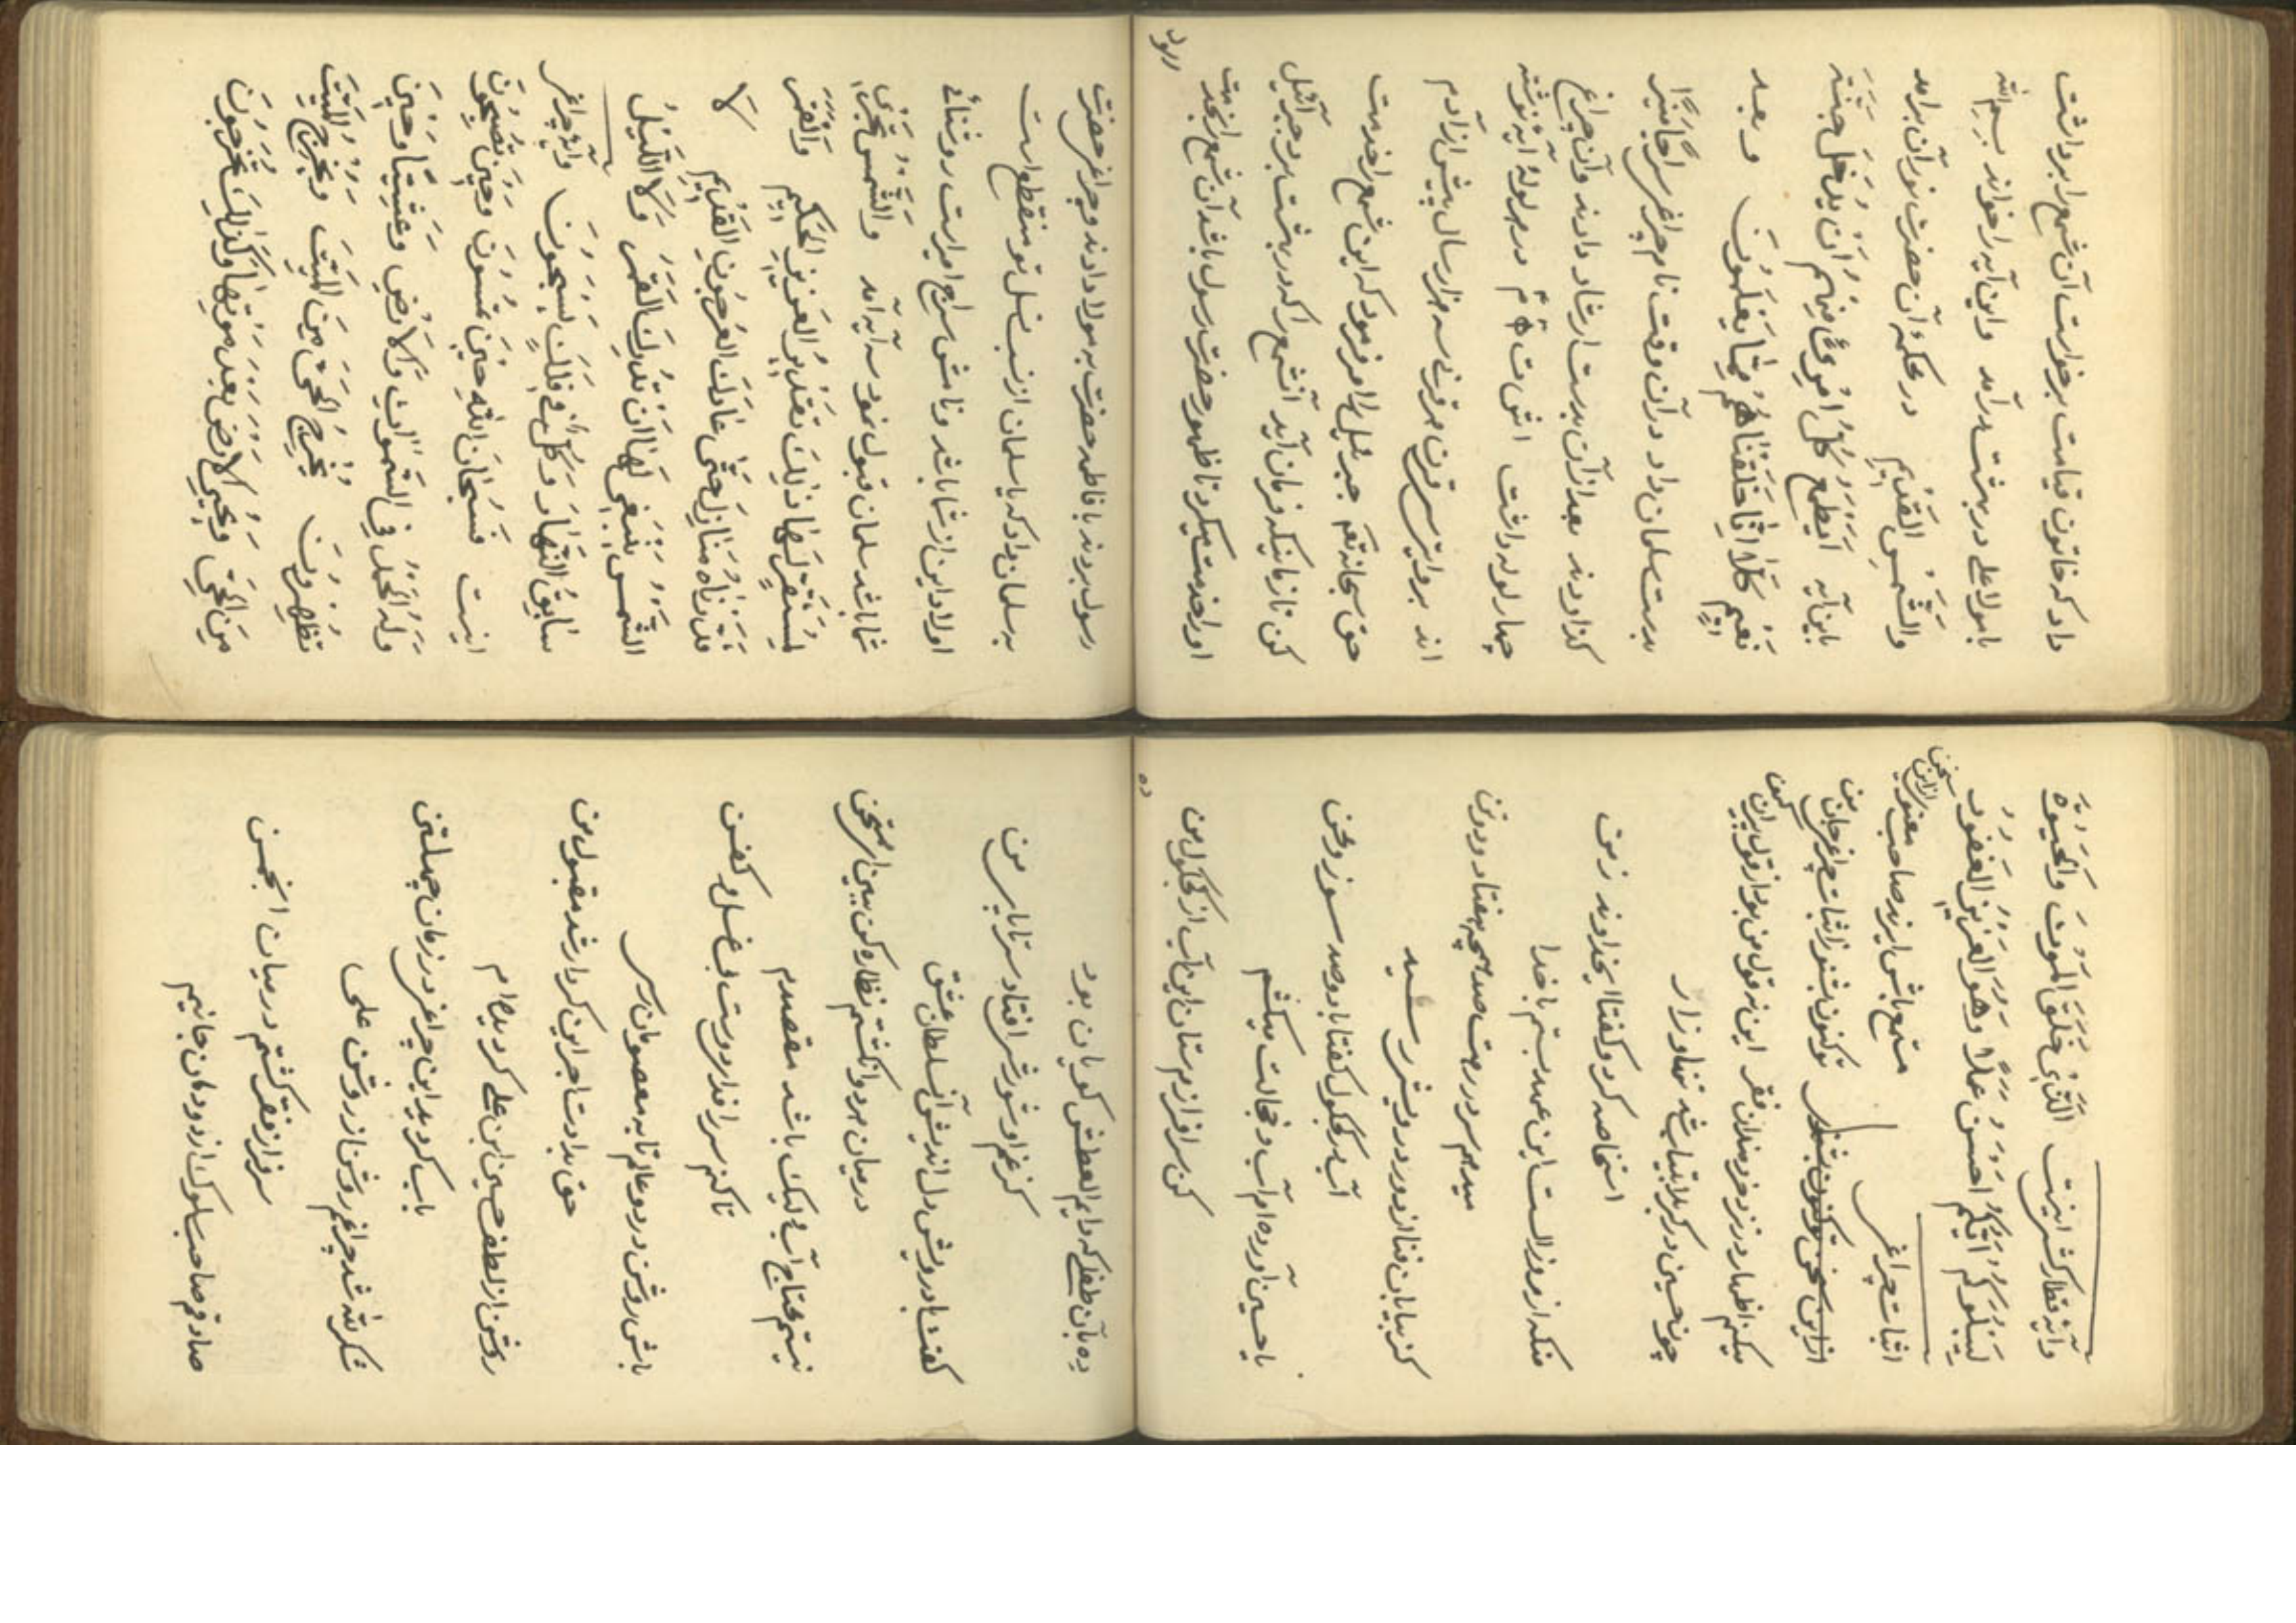 داد که خاتون قیامت برخواست آن شمع را برداشت
با مولا علی در بهشت درآمد و این آیه را خواند بسم الله
والشَّمسِ القَدیمِ در محکمهٔ آن حضرت نور آن برآمد
باین آیه اَیَطمَعُ کُلُّ امْرِئٍ مِنهُم اَنْ یُدخَلَ جَنَّةَ
نَعیمٍ کَلّا اِنّا خَلَقناهُم مِمّا یَعلَمُونَ و بعد
بدست سلمان داد در آن وقت نام چراغ سِراجًا مُنیرًا
گذاردند بعد از آن بدست ارشاد دادند و آن چراغ
چهار لوله داشت در هر لولهٔ آیه نوشته
اند بروایتی سی قرن هر قرنی سه هزار سال پیش از آدم
حق سبحانه تعم جبرئیل را امر فرمود که این شمع را خدمت
کن تا زمانیکه فرمان آید آنشمع را که در بهشت برد جبرآئیل
او را خدمت میکرد تا ظهور حضرت رسول باشد آن شمع را بخدمت
رسول
رسول بردند با فاطمه حضرت به مولا دادند و چراغ حضرت
به سلمان داد که یا سلمان از نسب نسل تو منقطع است
اولاد این از شما باشد و نامش سراج امارت روشنائے
شما باشد سلمان قبول نمود سه آیه آمد والشَّمسُ تَجری
لِمُستَقَرٍّ لَها ذلِکَ تَقدیرُ العَزیزِ الحَکیمِ وَالقَمَرَ
قَدَّرناهُ مَنازِلَ حَتّی عادَ کَالعُرجُونِ القَدیمِ لَا
الشَّمسُ یَنبَغی لَها اَنْ تُدرِکَ القَمَرَ وَلَا اللَّیلُ
سابِقُ النَّهارِ وَکُلٌّ فی فَلَکٍ یَسبَحُونَ وآیة چراغ
اینست فَسُبحانَ اللهِ حینَ تُمسُونَ وَحینَ تُصبِحُونَ
وَلَهُ الحَمدُ فِی السَّمواتِ وَالاَرضِ وَعَشِیًّا وَحینَ
تُظهِرُونَ یُخرِجُ الحَیَّ مِنَ المَیِّتِ وَیُخرِجُ المَیِّتَ
مِنَ الحَیِّ وَیُحیِی الاَرضَ بَعدَ مَوتِها وَکَذلِکَ تُخرَجُونَ
وآیة قطار کش اینست اَلَّذی خَلَقَ المَوتَ وَالحَیوةَ
لِیَبلُوَکُم اَیُّکُم اَحسَنُ عَمَلًا وَهُوَ العَزیزُ الغَفُورُ
اثبات چراغ مستمع باش ایند صاحب معنی
از این سخن تو کنون بشنو تو کنون بشنو ز اثبات چراغ جان من
میکنم اظهار در نزد خردمندان فقر این نه قول من بود از قول پیران کهن
چون حسین در کربلا بیتاب شد تنها و زار
استغاثه کرد و گفتا با خداوند زمن
منکه از روز الست این عهد بستم با خدا
میدهم سر در رهت صد همچو هفتاد و دو تن
کز بیابان فنا از دور درویشی رسید
آب در کجکول گفتا با دو صد سوز و محن
یا حسین آورده‌ام آب و خجالت میکشم
کن سرافرازم ستان این آب از کجکول من
ده
ده بآن طفلی که دایم العطش گویان بود
کز غم او شورش افتاد سر تا پای من
گفت با درویش دل اندیش آنسلطان عشق
در میان هر دو انگشتم نظاره کن ببین ای ممتحن
نیستم محتاج آب لیک باشد مقصدم
تا کنم سر را فدا دوست بی غسل و کفن
باش روشن در دو عالم تا به معصومان رسی
حق بدادت اجر این کردار شد مقبول من
روشن از لطف حسین ابن علی گردیده‌ام
باب گردید این چراغ در زمان چهل تن
شکر لله شد چراغم روشن از روشن علی
سرفراز فقر گشتم در میان انجمن
صادقم صاحب سلوک از دودمان جانیم